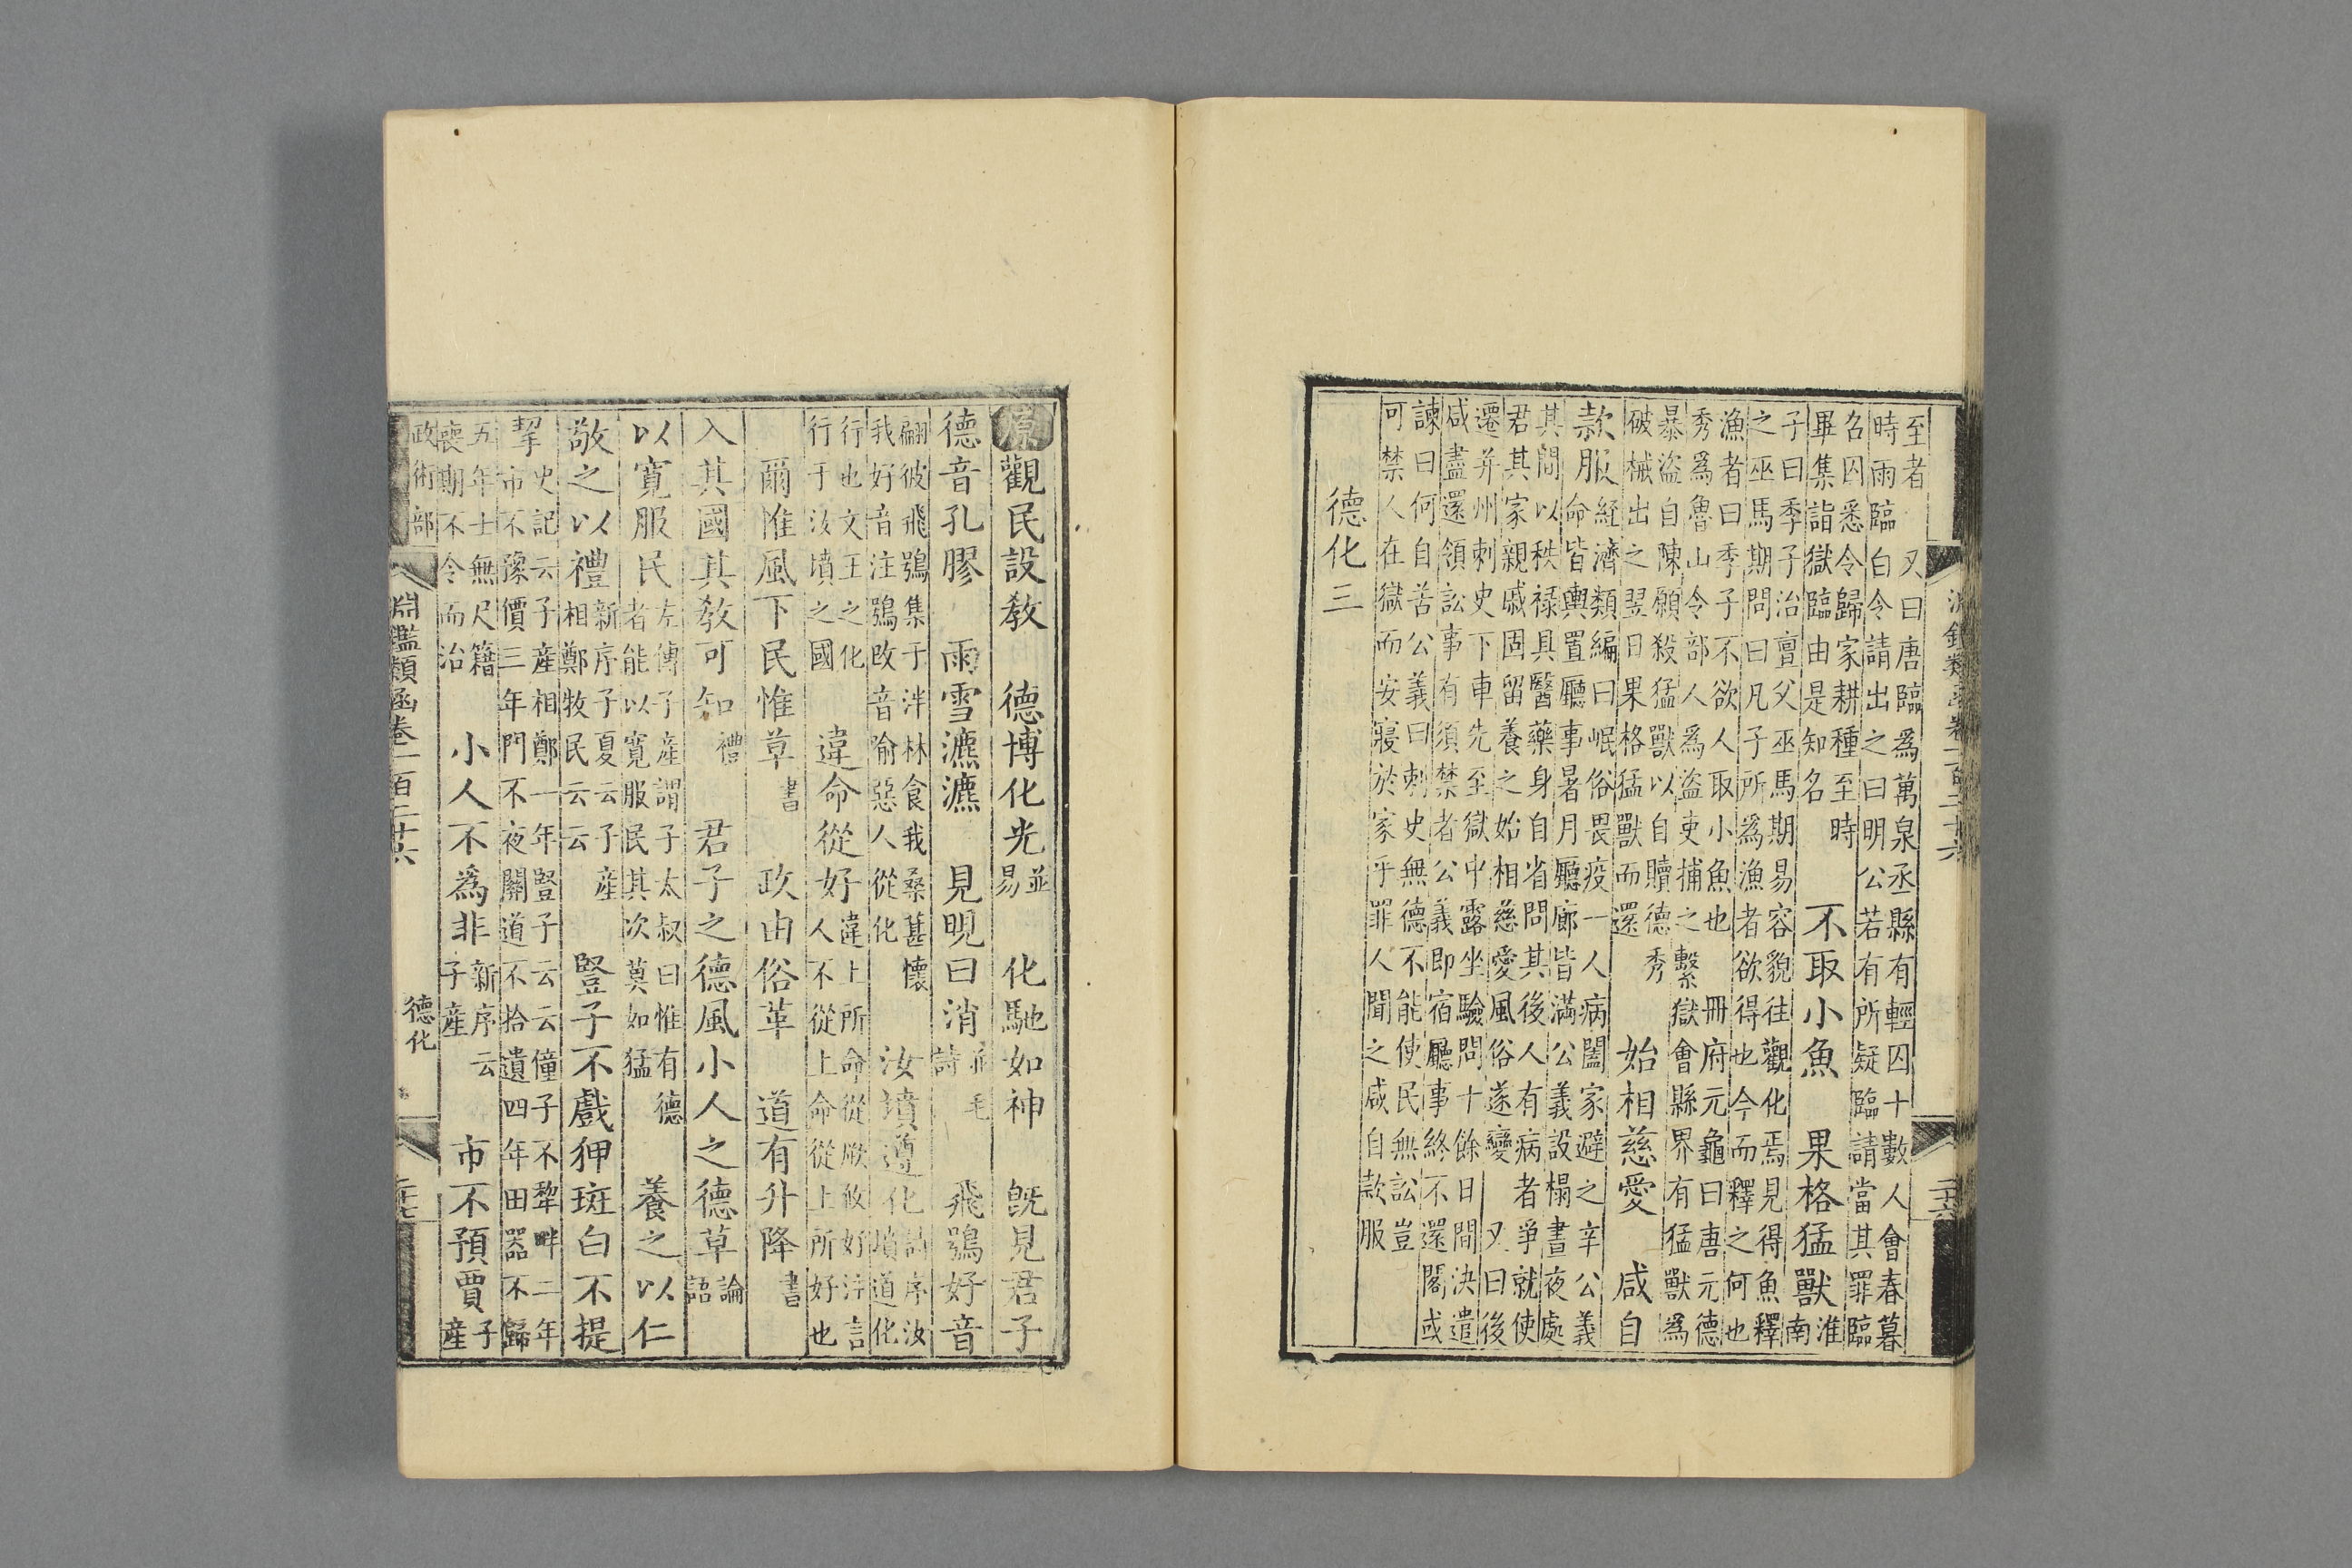 淵鑑類函卷一百二十六 二十六
至者 又曰唐臨爲萬泉丞縣有輕囚十數人會春暮
時雨臨白令請出之曰明公若有所疑臨請當其罪臨
召囚悉令歸家耕種至時
畢集詣獄臨由是知名
不取小魚 果格猛獸 淮南
子曰季子治亶父巫馬期易容貌往觀化焉見得魚釋
之巫馬期問曰凡子所爲漁者欲得也今而釋之何也
漁者曰季子不欲人取小魚也 冊府元龜曰唐元德
秀爲魯山令部人爲盜吏捕之繫獄會縣界有猛獸爲
暴盜自陳願殺猛獸以自贖德秀
破械出之翌日果格猛獸而還
始相慈愛 咸自
款服
經濟類編曰岷俗畏疫一人病闔家避之辛公義
命皆輿置廳事暑月廳廊皆滿公義設榻晝夜處
其間以秩祿具醫藥身自省問其後人有病者爭就使
君其家親戚固留養之始相慈愛風俗遂變 又曰後
遷并州刺史下車先至獄中露坐驗問十餘日間決遣
咸盡還領訟事有須禁者公義即宿廳事終不還閣或
諫曰何自苦公義曰刺史無德不能使民無訟豈
可禁人在獄而安寢於家乎罪人聞之咸自款服
德化三
原觀民設教 德博化光 並易 化馳如神 旣見君子
德音孔膠 雨雪瀌瀌 見晛曰消 並毛詩 飛鴞好音
翩彼飛鴞集于泮林食我桑葚懷
我好音注鴞改音喻惡人從化
汝墳遵化
詩序汝墳道化
行也文王之化
行于汝墳之國
違命從好
違上所命從厥攸好注言
人不從上命從上所好也
爾惟風下民惟草 書 政由俗革 道有升降 書
入其國其教可知 禮 君子之德風小人之德草 論語
以寬服民
左傳子產謂子太叔曰惟有德
者能以寬服民其次莫如猛
養之以仁
敬之以禮
新序子夏云子產
相鄭牧民云云
豎子不戲狎斑白不提
挈
史記云子産相鄭一年豎子云云僮子不犁畔二年
市不豫價三年門不夜關道不拾遺四年田器不歸
五年士無尺籍
喪期不令而治
小人不為非
新序云
子産
市不預賈 子産
政術部 淵鑑類函卷一百二十六 德化 二十七